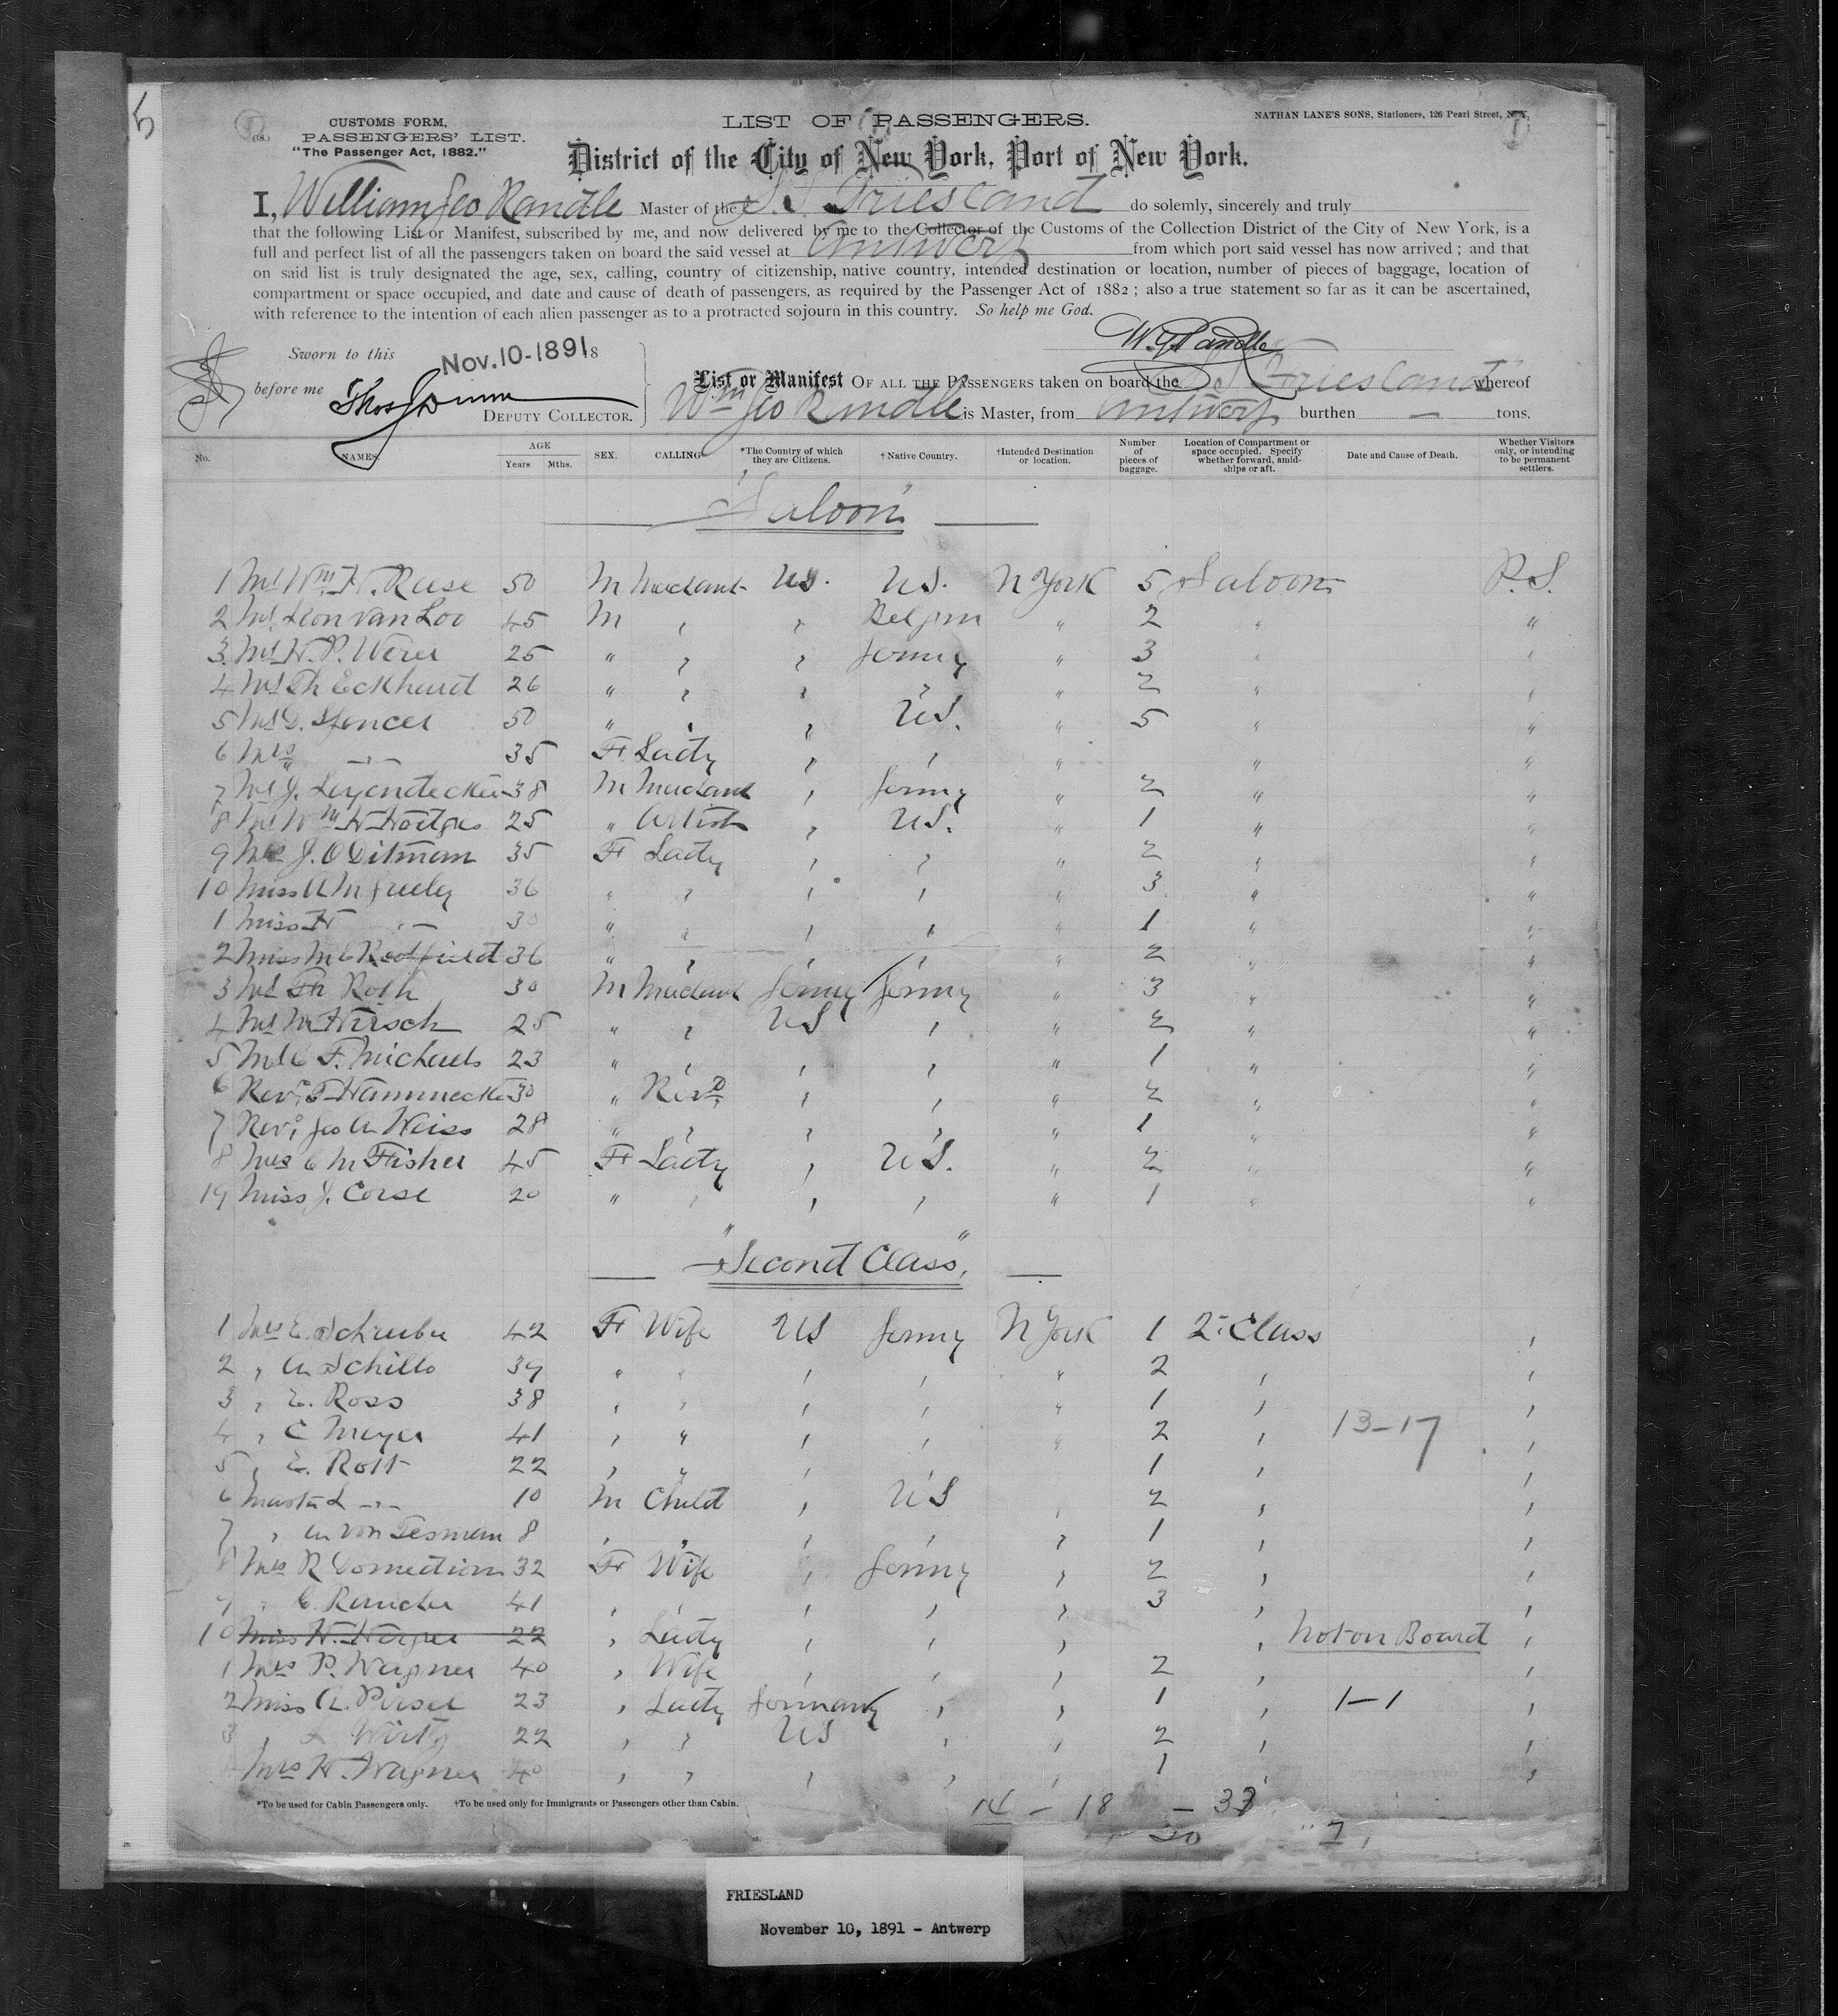 5
CUSTOMS FORM,
PASSENGERS' LIST.
"The Passenger Act, 1882."
LIST OF PASSENGERS.
NATHAN LANE'S SONS, Stationers, 126 Pearl Street, N.Y.
District of the City of New York, Port of New York.
I, William Geo Randle Master of the S.S. Friesland do solemly, sincerely and truly
that the following List or Manifest, subscribed by me, and now delivered by me to the Collector of the Customs of the Collection District of the City of New York, is a
full and perfect list of all the passengers taken on board the said vessel at Antwerp from which port said vessel has now arrived ; and that
on said list is truly designated the age, sex, calling, country of citizenship, native country, intended destination or location, number of pieces of baggage, location of
compartment or space occupied, and date and cause of death of passengers, as required by the Passenger Act of 1882 ; also a true statement so far as it can be ascertained,
with reference to the intention of each alien passenger as to a protracted sojourn in this country. So help me God.
W. G. Randle
Sworn to this Nov. 10-1891 8
before me
DEPUTY COLLECTOR.
List or Manifest OF ALL THE PASSENGERS taken on board the S.S. Friesland whereof
Wm Geo Randle is Master, from Antwerp burthen — tons.
No. NAMES. AGE Years Mths. SEX. CALLING *The Country of which they are Citizens. †Native Country. †Intended Destination or location. Number of pieces of baggage. Location of Compartment or space occupied. Specify whether forward, amid-ships or aft. Date and Cause of Death. Whether Visitors only, or intending to be permanent settlers.
"Saloon"
1 Mr Wm H. Reese 50 M Merchant US. US. N York 5 Saloon P.S.
2 Mr Leon Van Loo 45 M " " Belgium " 2 " "
3 Mr H. P. Werer 25 " " " Germy " 3 " "
4 Mr Th Eckhardt 26 " " " " " 2 " "
5 Mr D. Spencer 50 " " " US. " 5 " "
6 Mrs -"- 35 F Lady " " " " "
7 Mr J. Leyendecker 38 M Merchant " Germy " 2 " "
8 Mr Wm H Hodges 25 " Artist " US. " 1 " "
9 Mrs J. O Ditman 35 F Lady " " " 2 " "
10 Miss A M Freely 36 " " " " " 3 " "
1 Miss H -"- 30 " " " " " 1 " "
2 Miss M C Redfield 36 " " " " " 2 " "
3 Mr Fr Roth 30 M Merchant Germy Germy " 3 " "
4 Mr M Hirsch 25 " " US " " 2 " "
5 Mr C F. Michaels 23 " " " " " 1 " "
6 Revd F Hammecke 30 " Revd " " " 2 " "
7 Revd Geo A Weiss 28 " " " " " 1 " "
8 Mrs C M Fisher 45 F Lady " US. " 2 " "
19 Miss J. Corse 20 " " " " " 1 " "
"Second Class"
1 Mrs E. Schreiber 42 F Wife US Germy N York 1 2d Class "
2 " A Schillo 39 " " " " " 2 " "
3 " E. Ross 38 " " " " " 1 " "
4 " C Meyer 41 " " " " " 2 " 13-17 "
5 " E. Rott 22 " " " " 1 " "
6 Master L -"- 10 M Child " US " 2 " "
7 " A von Tesmen 8 " " " " " 1 " "
8 Mrs R 32 F Wife " Germy " 2 " "
9 " C. 41 " " " " " 3 " "
10 Miss H. 22 " Lady " " " " Not on Board "
1 Mrs P. Wagner 40 " Wife " " " 2 " "
2 Miss A. 23 " Lady Germany " " 1 " 1-1 "
3 " L Wirtz 22 " " US " " 2 " "
Mrs H. Wagner 40 " " " " " 1 " "
*To be used for Cabin Passengers only. †To be used only for Immigrants or Passengers other than Cabin.
14 - 18 - 33
FRIESLAND
November 10, 1891 - Antwerp